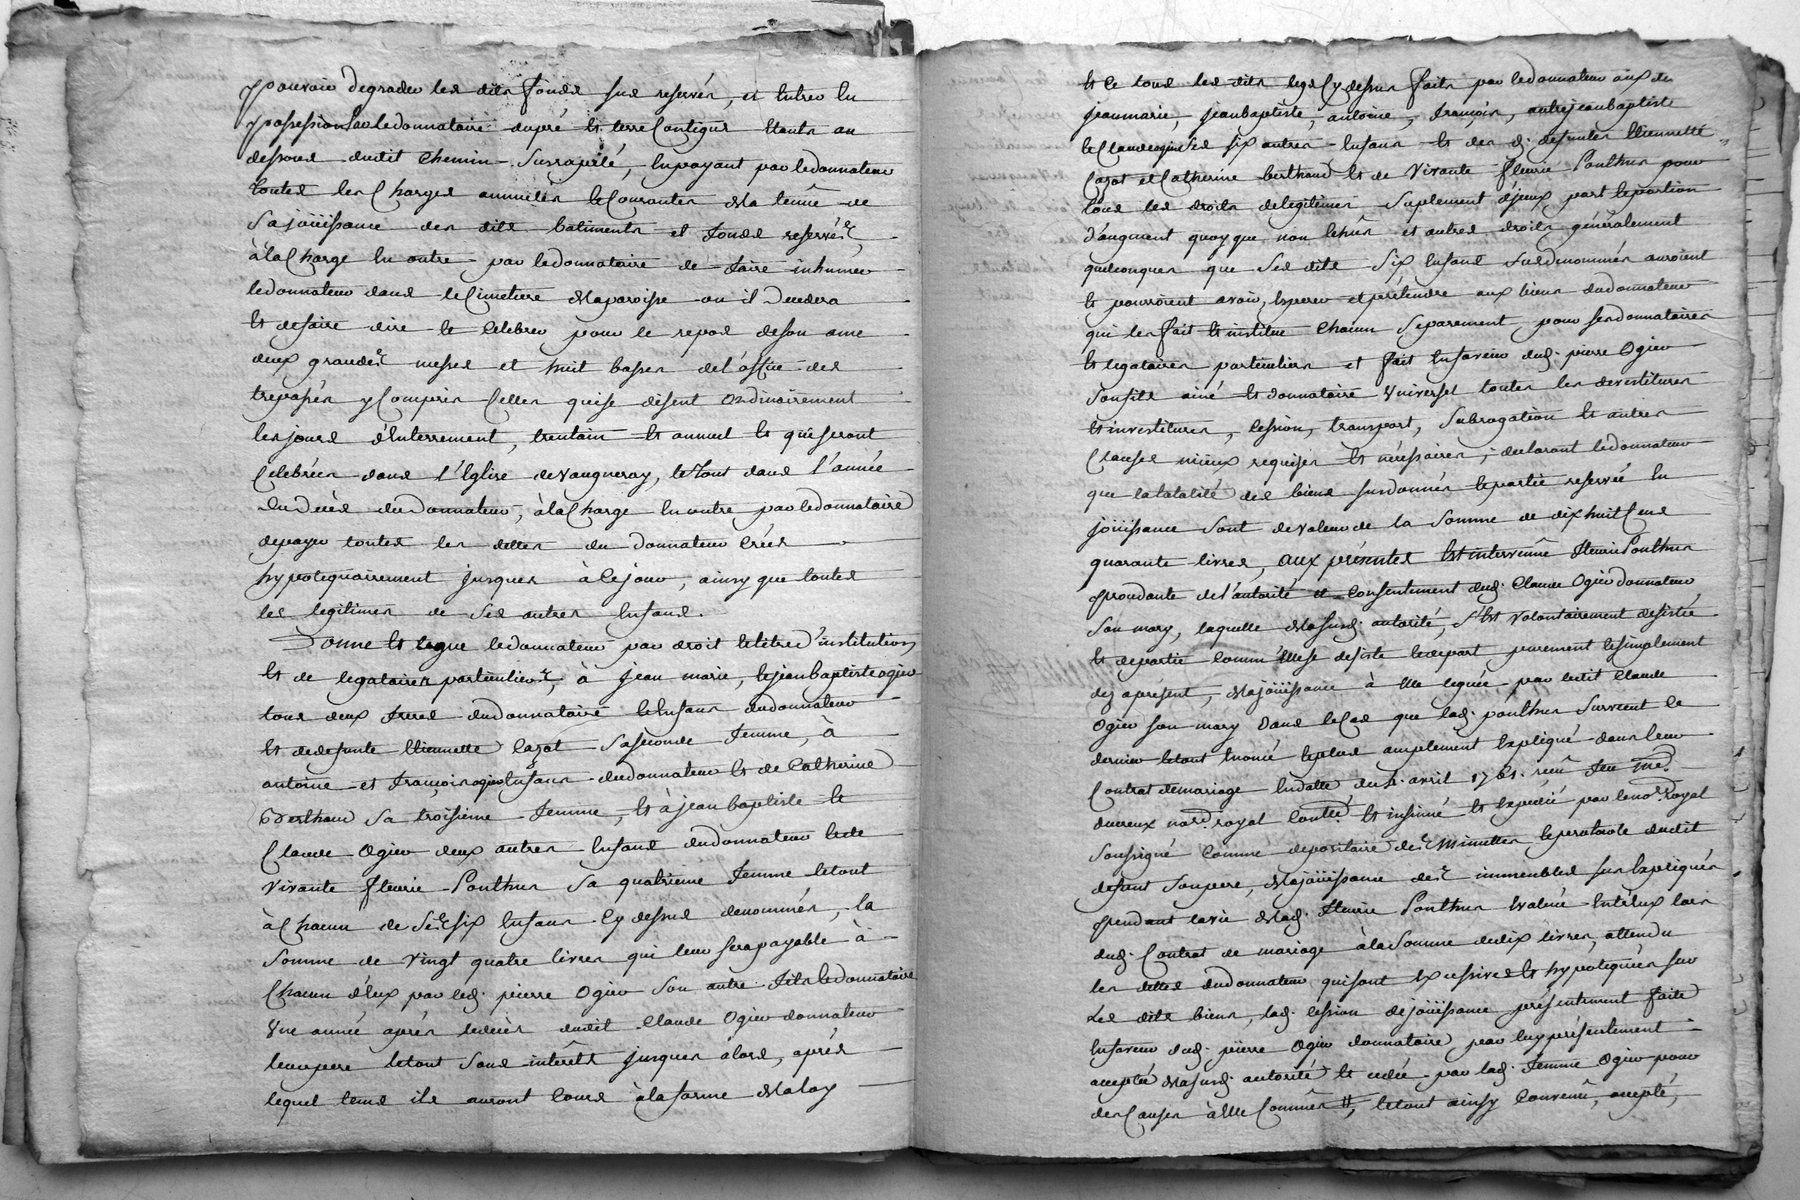 pouvoir degrader les dits fonds sus reservés, et entrer en
possession par le donnataire dupré et terre contigus etants au
dessous dudit chemin susrapellé, en payant par le donnateur
toutes les charges annuelles et courantes et la tenüe de
sa joüissance des dits batiments et fonds reservés,
à la charge en outre par le donnataire de faire inhumer
le donnateur dans le cimetiere de la paroisse ou il decedera
et de faire dire et celebrer pour le repos de son ame
deux grandes messes et huit basses de l'office des
trepassés y compris celles qui se disent ordinairement
les jours d'enterrement, trentain et annuel et qui seront
celebrées dans l'Eglise de Vaugneray, le tout dans l'année
du decès du donnateur, à la charge en outre par le donnataire
de payer toutes les dettes du donnateur créés
hypotequairement jusques à ce jour, ainsy que toutes
les legitimes de ses autres enfans.
Donne et legue le donnateur par droit et titre d'institution
et de legataires particuliers, à jean marie, et jean baptiste ogier
tous deux freres du donnataire et enfans du donnateur
et de defunte Etiennette Cazot sa seconde femme, à
antoine et françois ogier enfans du donnateur et de Catherine
Berthaud sa troisieme femme, et à jean baptiste et
Claude Ogier deux autres enfans du donnateur et de
vivante fleurie Ponthus sa quatrieme femme le tout
à chacun de ses six enfans cy dessus denommés, la
somme de vingt quatre livres qui leur sera payable à
chacun d'eux par led. pierre Ogier son autre fils et donnataire
une année après le decès dudit Claude Ogier donnateur
leur pere le tout sans interêts jusques alors, après
lequel tems ils auront cours à la forme de la loy
et ce tous les dits legs cy dessus faits par le donnateur aux dits
jean marie, jean baptiste, antoine, françois, autre jean baptiste
et Claude ogier ses six autres enfans et des d. defuntes Etiennette
Cazot et Catherine berthaud et de vivante fleurie Ponthus pour
tous les droits de legitimes suplement d'jceux part et portion
d'augment quoy que non echus et autres droits généralement
quelconques que ses dits six enfans susdenommés auroient
et pourroient avoir, esperer et prétendre aux biens du donnateur
qui les fait et institue chacun separement pour ses donnataires
et legataires particuliers et fait en faveur dud. pierre Ogier
son fils ainé et donnataire universel toutes les devestitures
et investitures, cession, transport, subrogation et autres
clauses mieux requises et nécessaires; declarant le donnateur
que la totalité des biens susdonnés et partie reservée en
joüissance sont de valeur de la somme de dix huit cens
quarante livres, aux présentes est intervenüe fleurie Ponthus
procedante de l'autorité et consentement dud. Claude Ogier donnateur
son mary, laquelle de la susd. autorité, s'est volontairement desistée
et departie comme elle se desiste et depart purement et simplement
dez aprésent, de la joüissance à elle leguée par ledit Claude
Ogier son mary dans le cas que lad. ponthus survecut ce
dernier le tout enoncé et plus amplement expliqué dans leur
Contrat de mariage en datte du 2. avril 1761. recu feu Me.
ducreux not. royal contrôllé et insinué et expedié par le not. Royal
soussigné comme depositaire des minuttes et protocole dudit
defunt son pere, de la joüissance des immeubles sus expliqués
pendant la vie de lad. fleurie Ponthus evalué entr'eux lors
dud. Contrat de mariage à la somme de dix livres, attendu
les dettes du donnateur qui sont excessives et hypotequées sur
les dits biens, lad. cession de joüissance présentement faite
en faveur dud. pierre Ogier donnataire, par luy présentement
acceptée de la susd. autorité et cedée par lad. femme Ogier pour
des causes à elle connües #, le tout ainsy convenu, accepté,